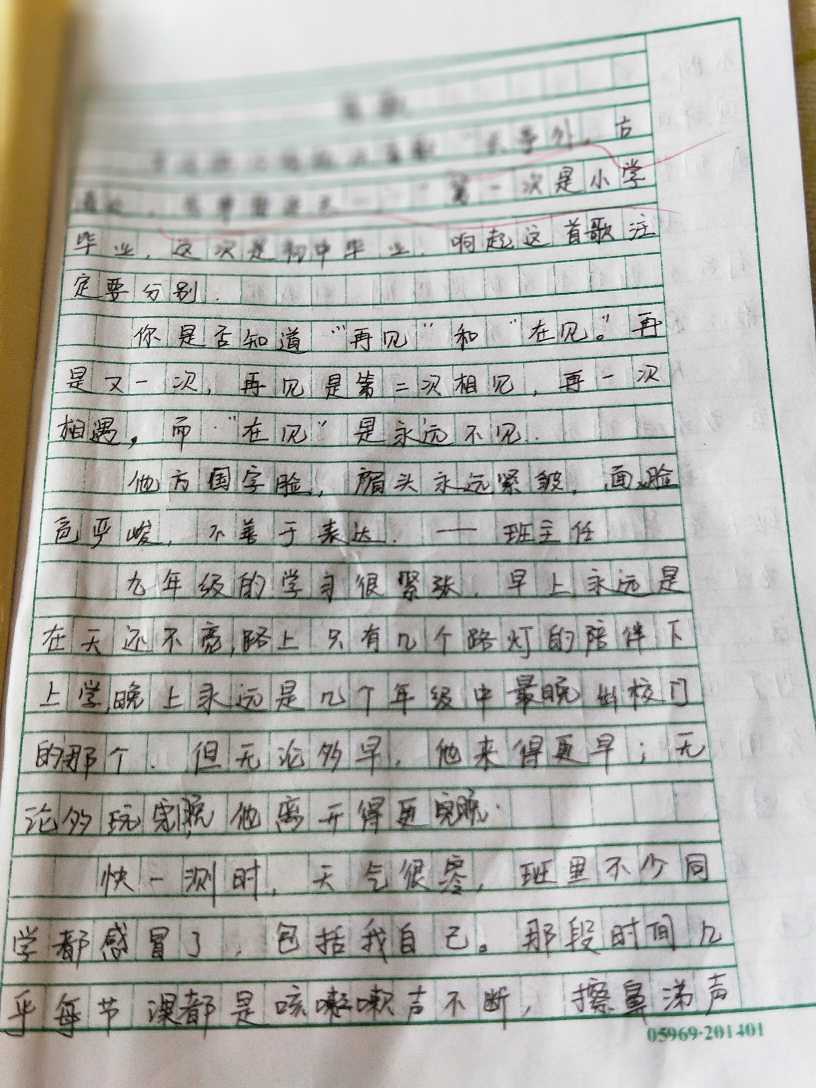 "长亭外，古
第一次是小学
毕业，这次是初中毕业．响起这首歌注
定要分别．
你是否知道"再见"和"在见。"再
是又一次，再见是第二次相见，再一次
相遇。而"在见"是永远不见．
他方国字脸，眉头永远紧皱，面脸
色严峻，不善于表达．——班主任
九年级的学习很紧张．早上永远是
在天还不亮，路上只有几个路灯的陪伴下
上学，晚上永远是几个年级中最晚出校门
的那个．但无论多早，他来得更早；无
论多晚他离开得更晚．
快一测时，天气很冷，班里不少同
学都感冒了，包括我自己。那段时间几
乎每节课都是咳嗽声不断，擦鼻涕声
05969·201401